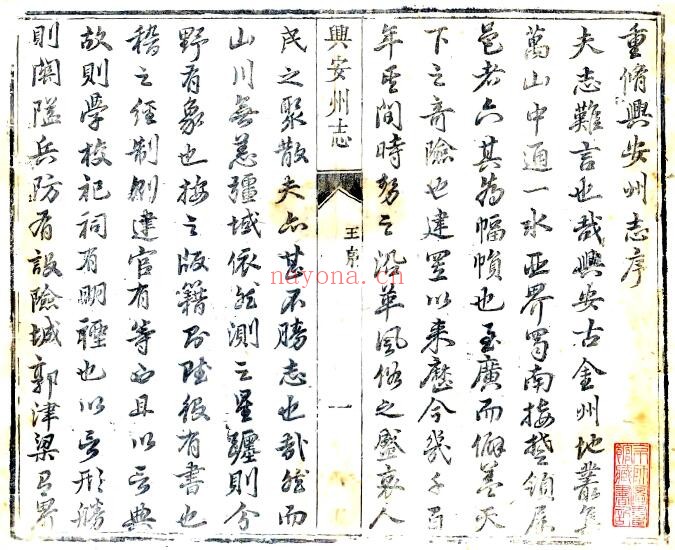 重脩興安州志序
夫志難言也哉興安古金州地叢
萬山中通一水西界蜀南接楚領
邑者六其為幅幀也至廣而僻蓋天
下之奇險也建置以来歷今幾千百
年其間時勢之沿革風俗之盛衰人
興安州志
王序
一
民之聚散夫亦甚不勝志也哉然而
山川無恙疆域依然測之星躔則分
野有象也按之版籍則陸役有書也
稽之經制則建官有等也且以言典
故則學校祀祠有明禋也以言形勝
則關隘兵防有設險城郭津梁有界
nayona.cn